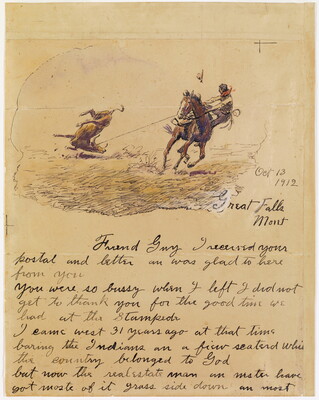 Oct 13
1912
Great Falls
Mont
Friend Guy I received your
postal and letter an was glad to here
from you
You were so bussy when I left I did not
get to thank you for the good time we
had at the Stampede
I came west 31 years ago at that time
baring the Indians an a fiew scaterd whits
the country belonged to God
but now the real estate man an nster have
got moste of it grass side down an most